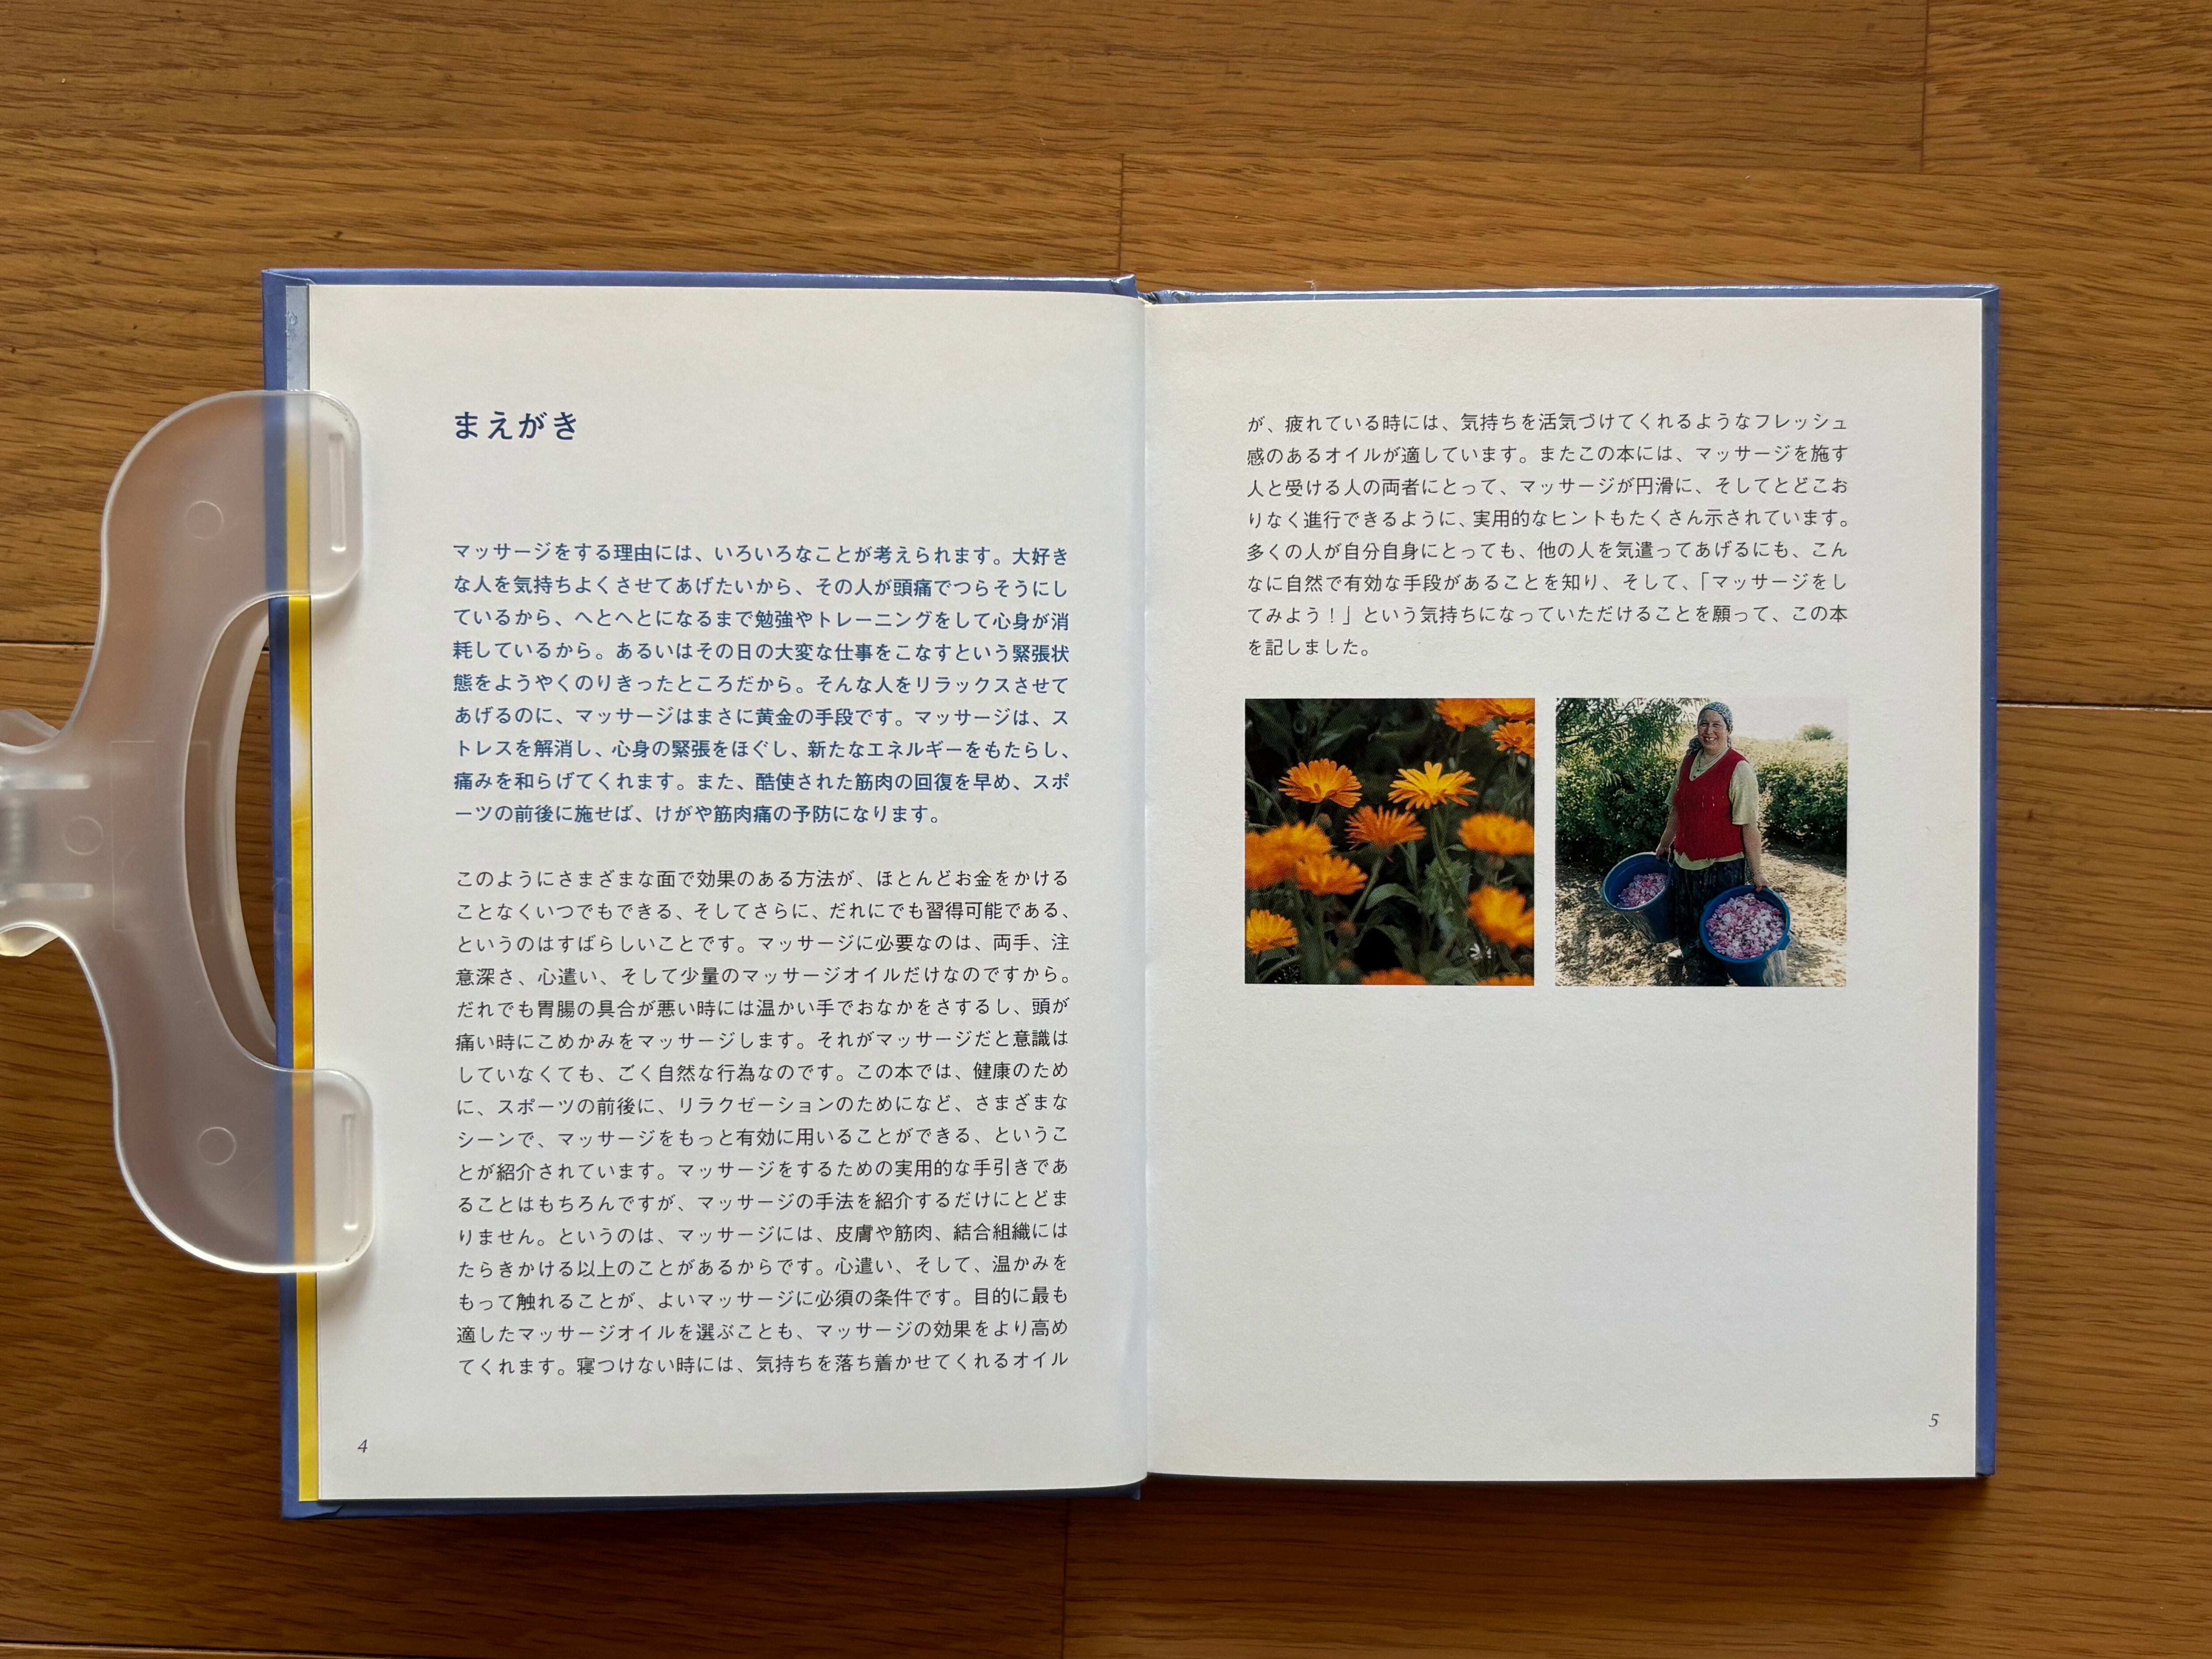 まえがき
マッサージをする理由には、いろいろなことが考えられます。大好き
な人を気持ちよくさせてあげたいから、その人が頭痛でつらそうにし
ているから、へとへとになるまで勉強やトレーニングをして心身が消
耗しているから。あるいはその日の大変な仕事をこなすという緊張状
態をようやくのりきったところだから。そんな人をリラックスさせて
あげるのに、マッサージはまさに黄金の手段です。マッサージは、ス
トレスを解消し、心身の緊張をほぐし、新たなエネルギーをもたらし、
痛みを和らげてくれます。また、酷使された筋肉の回復を早め、スポ
ーツの前後に施せば、けがや筋肉痛の予防になります。
このようにさまざまな面で効果のある方法が、ほとんどお金をかける
ことなくいつでもできる、そしてさらに、だれにでも習得可能である、
というのはすばらしいことです。マッサージに必要なのは、両手、注
意深さ、心遣い、そして少量のマッサージオイルだけなのですから。
だれでも胃腸の具合が悪い時には温かい手でおなかをさするし、頭が
痛い時にこめかみをマッサージします。それがマッサージだと意識は
していなくても、ごく自然な行為なのです。この本では、健康のため
に、スポーツの前後に、リラクゼーションのためになど、さまざまな
シーンで、マッサージをもっと有効に用いることができる、というこ
とが紹介されています。マッサージをするための実用的な手引きであ
ることはもちろんですが、マッサージの手法を紹介するだけにとどま
りません。というのは、マッサージには、皮膚や筋肉、結合組織には
たらきかける以上のことがあるからです。心遣い、そして、温かみを
もって触れることが、よいマッサージに必須の条件です。目的に最も
適したマッサージオイルを選ぶことも、マッサージの効果をより高め
てくれます。寝つけない時には、気持ちを落ち着かせてくれるオイル
4
が、疲れている時には、気持ちを活気づけてくれるようなフレッシュ
感のあるオイルが適しています。またこの本には、マッサージを施す
人と受ける人の両者にとって、マッサージが円滑に、そしてとどこお
りなく進行できるように、実用的なヒントもたくさん示されています。
多くの人が自分自身にとっても、他の人を気遣ってあげるにも、こん
なに自然で有効な手段があることを知り、そして、「マッサージをし
てみよう！」という気持ちになっていただけることを願って、この本
を記しました。
5